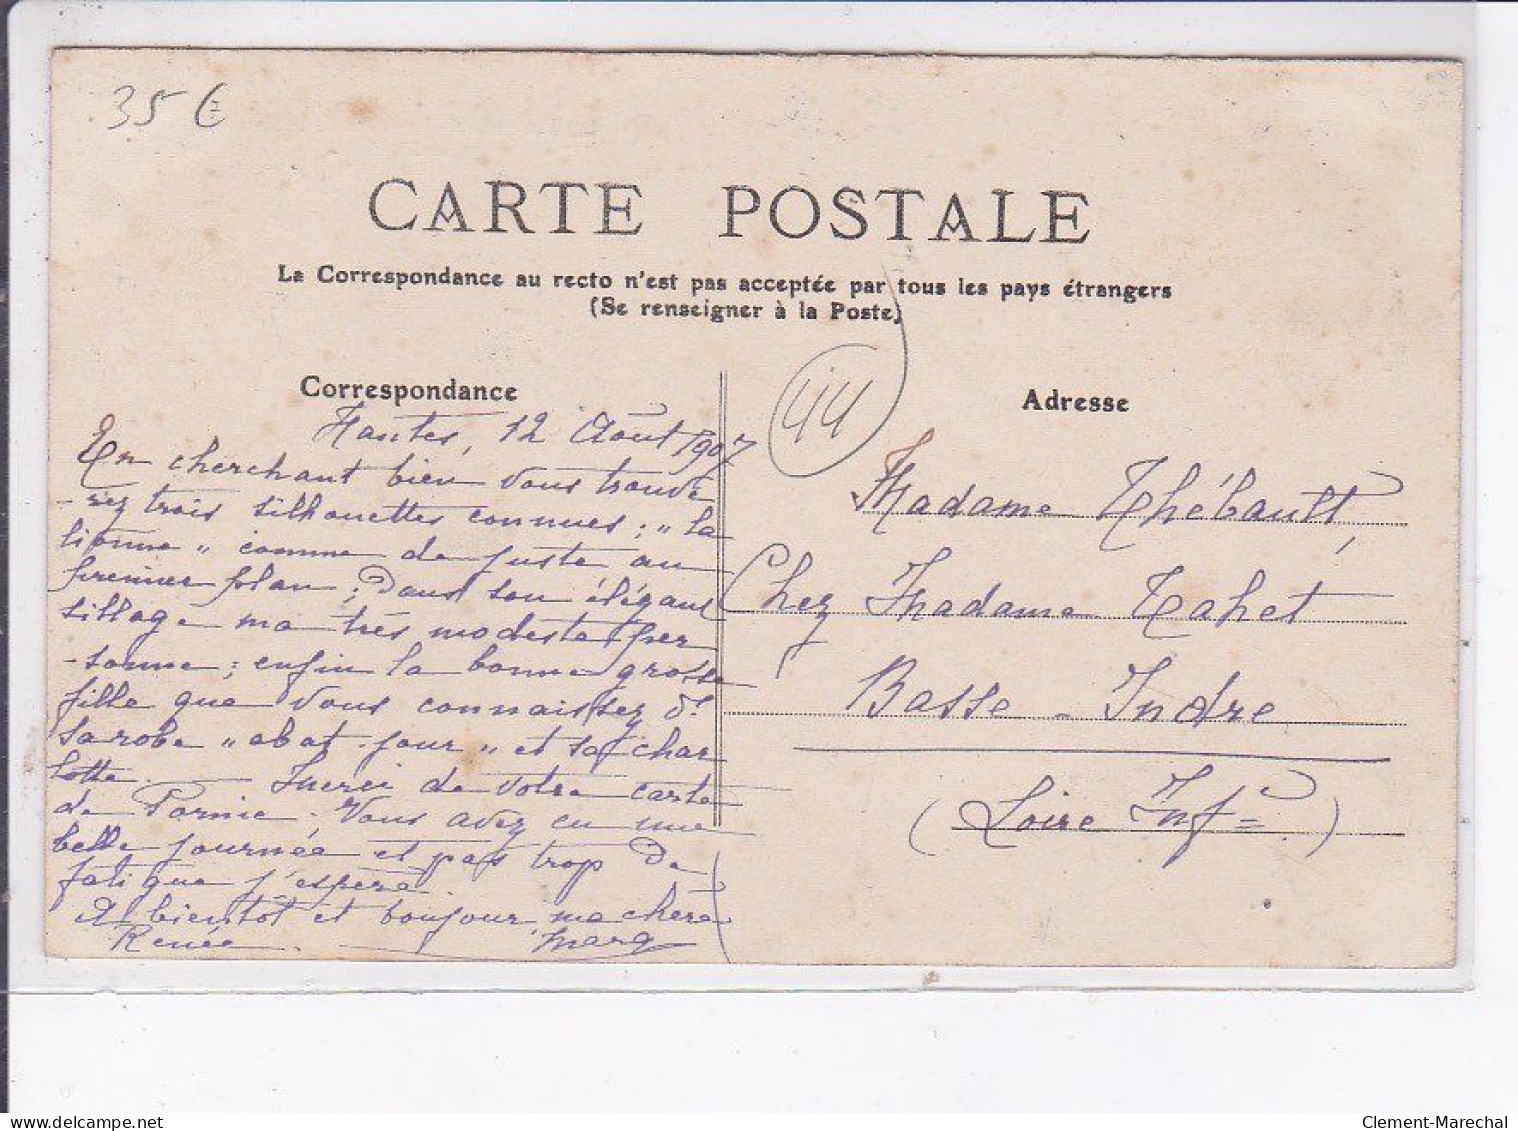 35 €
CARTE POSTALE
La Correspondance au recto n'est pas acceptée par tous les pays étrangers
(Se renseigner à la Poste)
Correspondance
Nantes, 12 Août 1907
En cherchant bien vous trouve
-rez trois silhouettes connues ; " la
lionne " comme de juste au
premier plan ; Dans son élégant
sillage ma très modeste per
-sonne ; enfin la bonne grosse
fille que vous connaissez ds
sa robe " abat-jour " et sa char
lotte. — Merci de votre carte
de Pornic. Vous avez eu une
belle journée et pas trop de
fatigue j'espère
A bientôt et bonjour, ma chère
Renée. Marg
44
Adresse
Madame Thébault,
Chez Madame Tahet
Basse-Indre
(Loire Infre)
Clement-Marechal